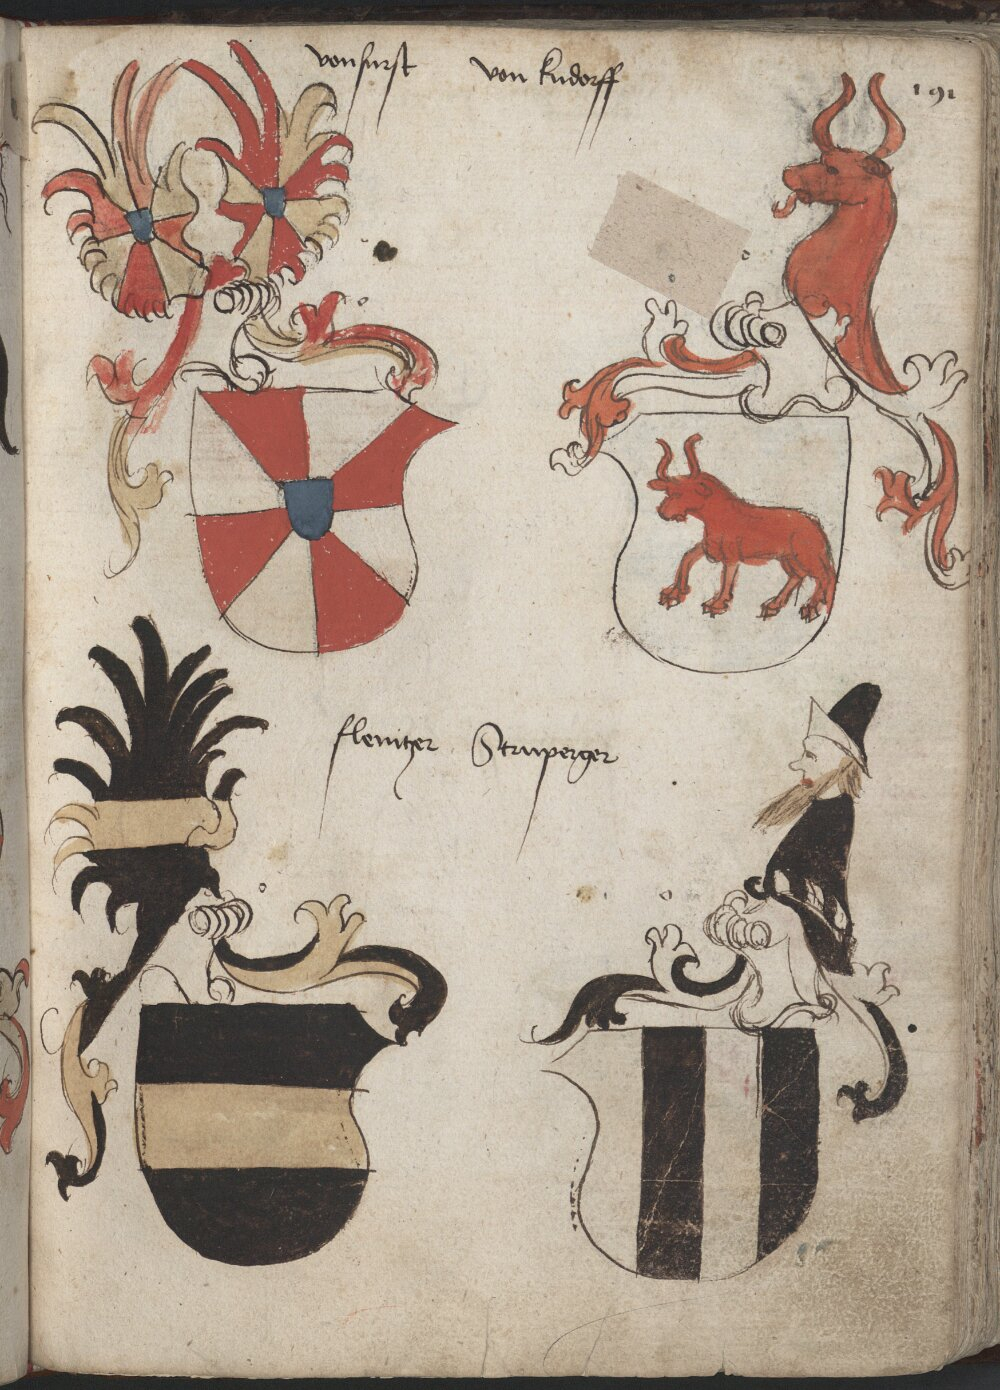 von furst
von kudorff
191
flenitzer
Struperger